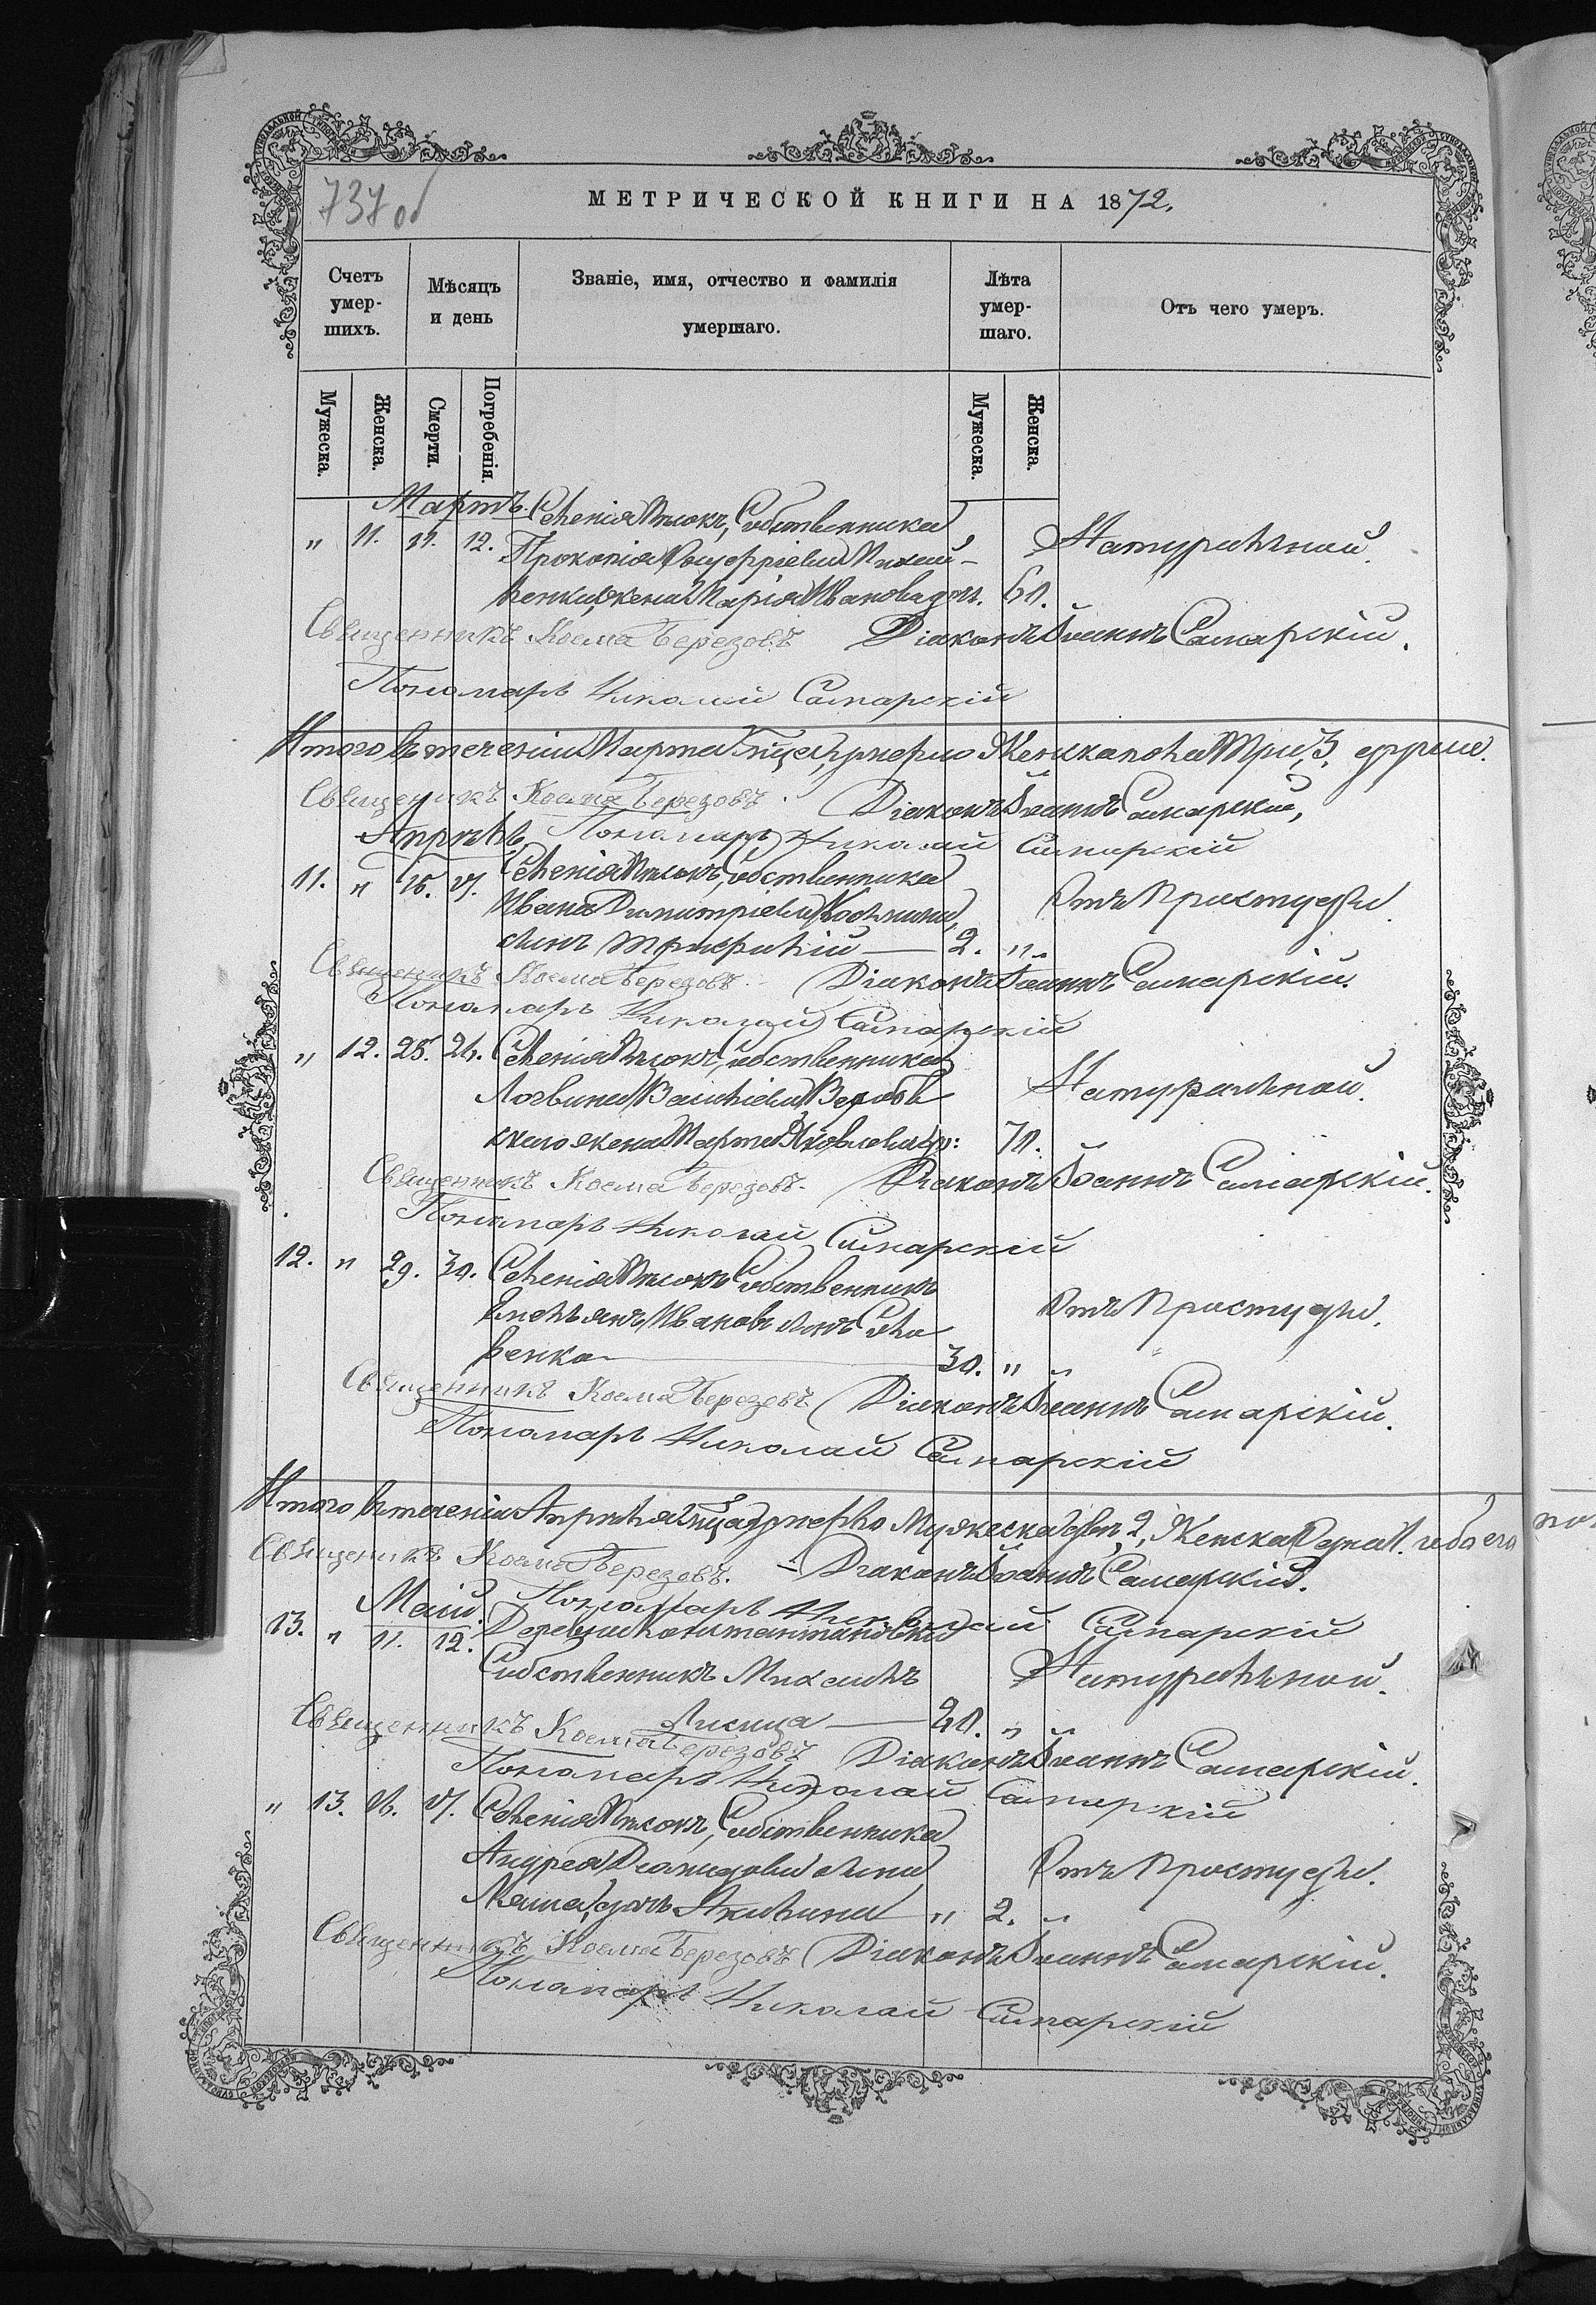 737 об
МЕТРИЧЕСКОЙ КНИГИ НА 1872.
Счетъ умер-шихъ.
Мѣсяцъ и день
Званіе, имя, отчество и фамилія умершаго.
Лѣта умер-шаго.
Отъ чего умеръ.
Мужеска.
Женска.
Смерти.
Погребенія.
Мужеска.
Женска.
Мартъ.
" 11. 11. 12. Селенія собственника
Прокопія Натуральной.
жена Марія Иванова 60.
Священникъ Косма Березовъ Діаконъ Іоаннъ Самарскій.
Пономарь Николай Самарскій
Итого въ теченіи Марта м-ца умерло Женска пола Три, 3. душе.
Священникъ Косма Березовъ. Діаконъ Іоаннъ Самарскій,
Пономарь Николай Самарскій
Апрѣль
11. " Селенія собственника
Ивана Димитріева Отъ Простуды.
сынъ 2. "
Священникъ Косма Березовъ. Діаконъ Іоаннъ Самарскій.
Пономарь Николай Самарскій
" 12. 25. 26. Селенія собственника
Логвина Натуральной.
жена Марта Яковлева 70.
Священникъ Косма Березовъ. Діаконъ Іоаннъ Самарскій.
Пономарь Николай Самарскій
12. " 29. 30. Селенія Собственникъ
Емельянъ Ивановъ сынъ Отъ Простуды.
венко 30. "
Священникъ Косма Березовъ Діаконъ Іоаннъ Самарскій.
Пономарь Николай Самарскій
Итого въ теченіи Апрѣля м-ца умерло Мужеска два, 2, Женска Одна 1.
Священникъ Косма Березовъ. Діаконъ Іоаннъ Самарскій.
Пономарь Николай Самарскій
Маій.
13. " 11. 12. Деревни Константиновки
Собственникъ Михаилъ Натуральной.
Лисица
Священникъ Косма Березовъ Діаконъ Іоаннъ Самарскій.
Пономарь Николай Самарскій
" 13. 16. 17. Селенія Собственника
Андрея Отъ Простуды.
дочь Акилина " 2.
Священникъ Косма Березовъ Діаконъ Іоаннъ Самарскій.
Пономарь Николай Самарскій